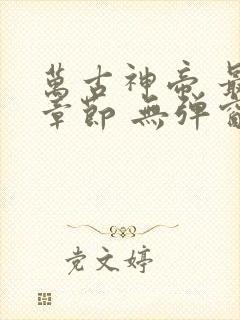 萬古神帝 最
章節 無彈窗
党文婷